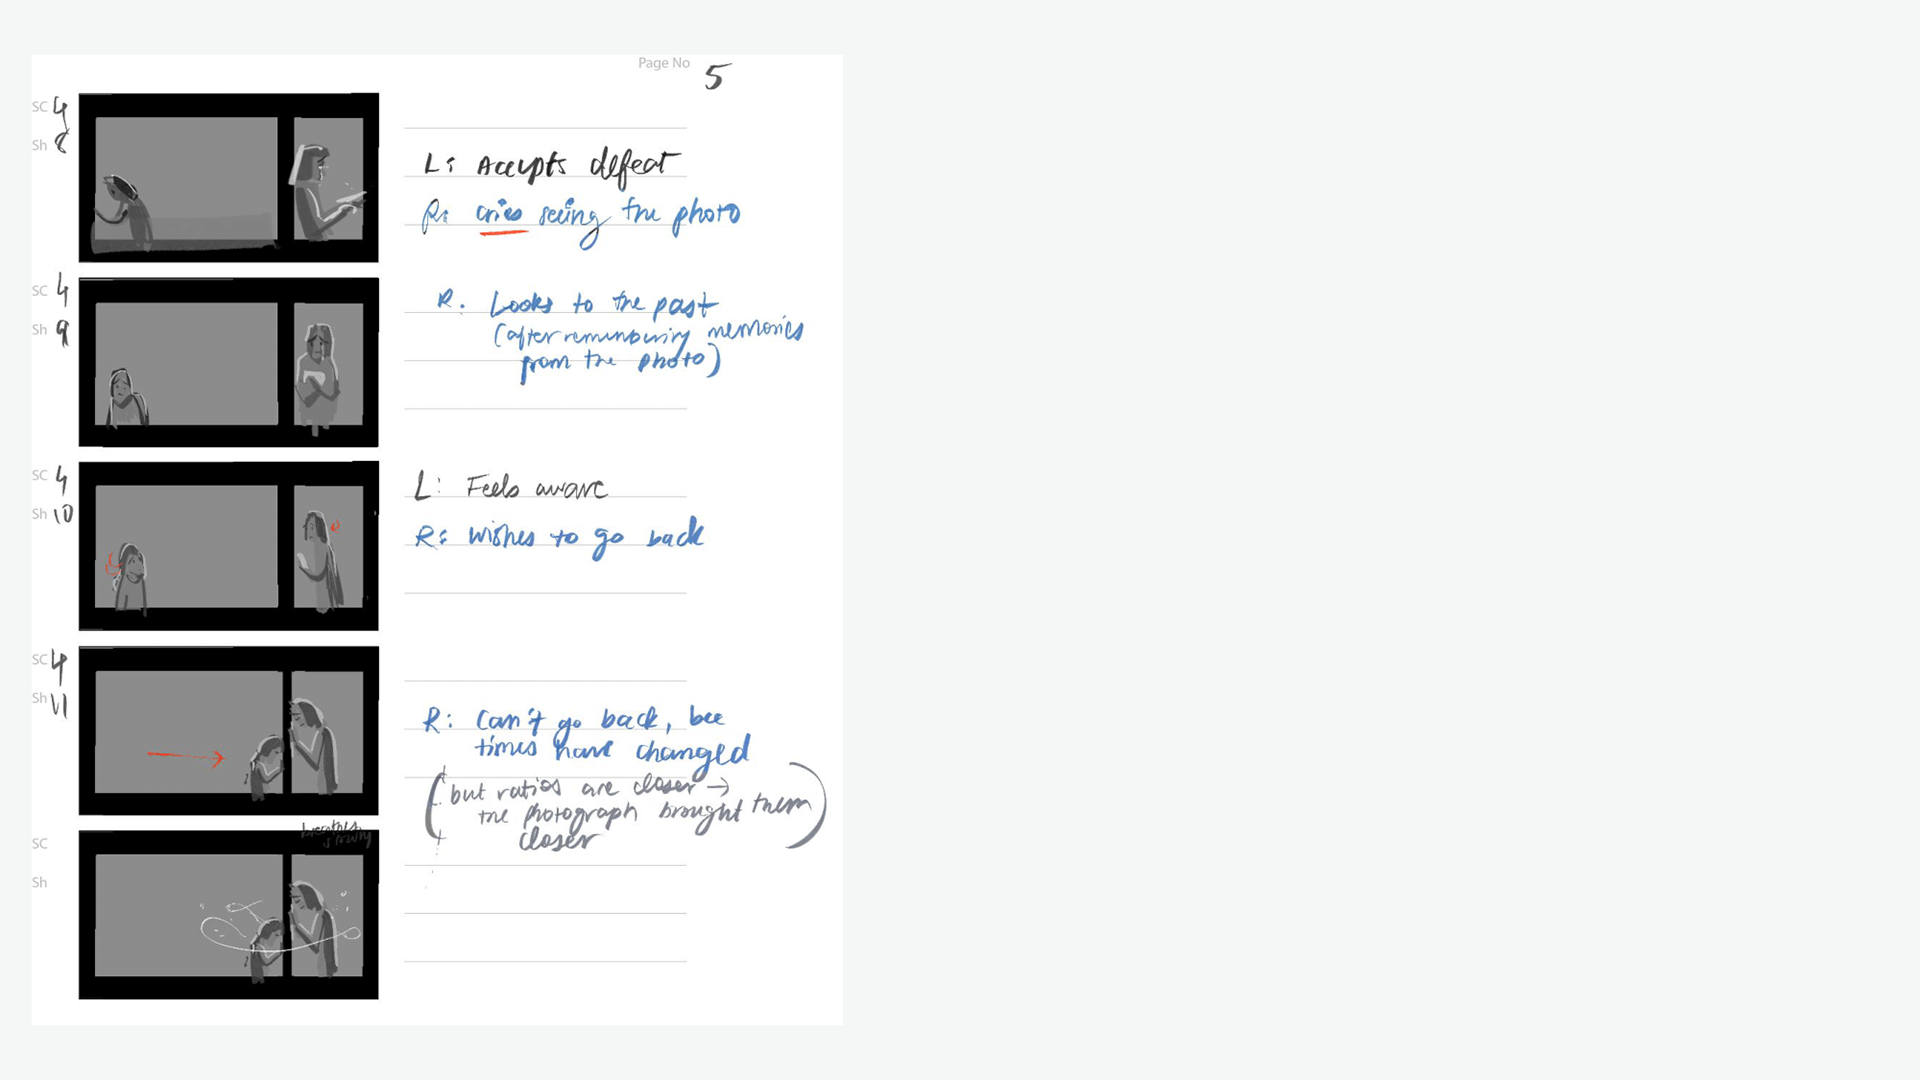 Page No 5
SC 4
Sh 8
L: Accepts defeat
R: cries seeing the photo
SC 4
Sh 9
R. Looks to the past
(after remembering memories
from the photo)
SC 4
Sh 10
L: Feels aware
R: wishes to go back
SC 4
Sh 11
R: Can't go back, bec
times have changed
(but ratios are closer →
the photograph brought them
closer)
SC
breathes
slowly
Sh